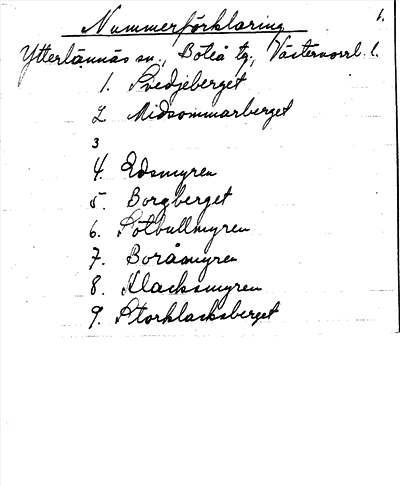 Nummerförklaring 1.
Ytterlännäs sn., Boteå tg., Västernorrl. l.
1. Svedjeberget
2. Midsommarberget
3
4. Edsmyren
5. Borgberget
6. Sötbullmyren
7. Boråmyren
8. Klacksmyren
9. Storklacksberget